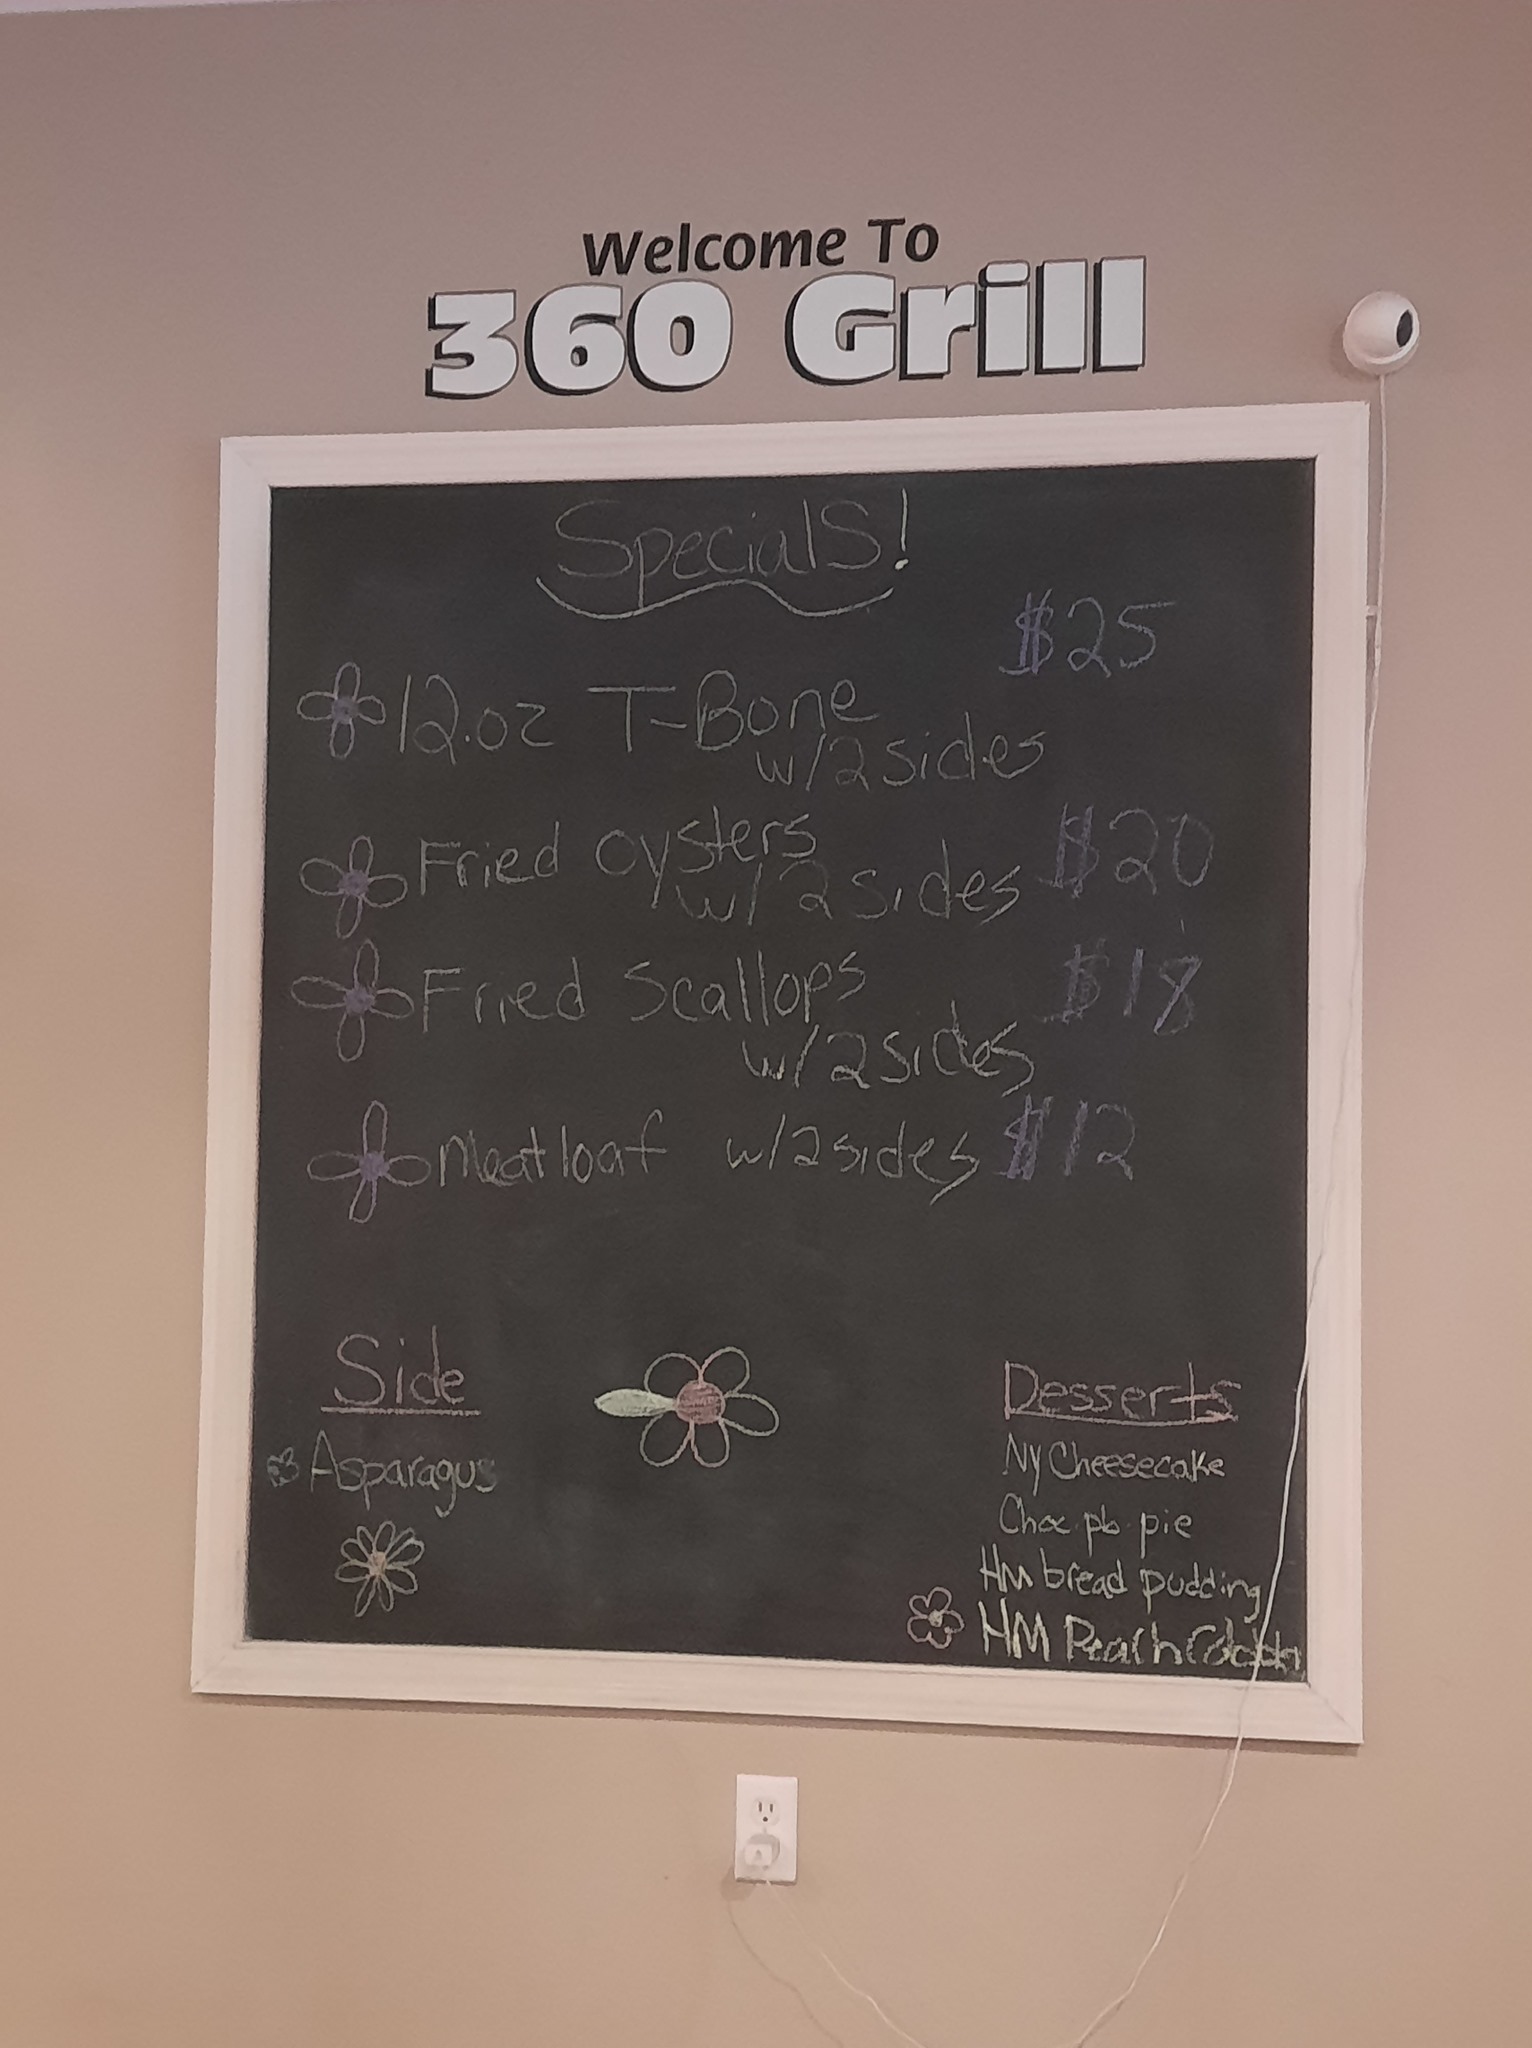 Welcome To
360 Grill
SpecialS!
$25
12.oz T-Bone
w/2sides
Fried oysters $20
w/2sides
Fried Scallops $18
w/2sides
Meatloaf w/2sides $12
Side
Asparagus
Desserts
Ny Cheesecake
Choc. pb. pie
HM bread pudding
HM Peach